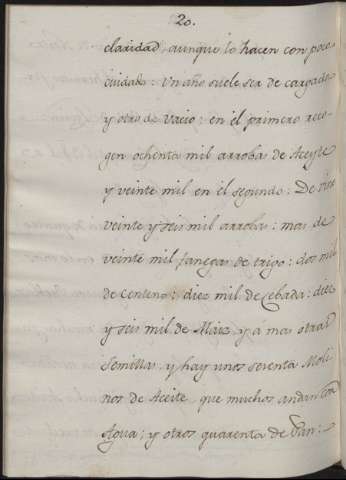 20.
claridad, aunque lo hacen con poco
cuidado: Un año suele ser de cargado
y otro de vacio: en el primero reco-
gen ochenta mil arroba de Aceyte
y veinte mil en el segundo: De vino
veinte y seis mil arrobas: mas de
veinte mil fanegas de trigo: dos mil
de centeno: diez mil de Cebada: diez
y seis mil de Maiz y a mas otras
Semillas, y hay unos sesenta Moli
nos de Aceite, que muchos andan con
Agua; y otros quarenta de Pan: